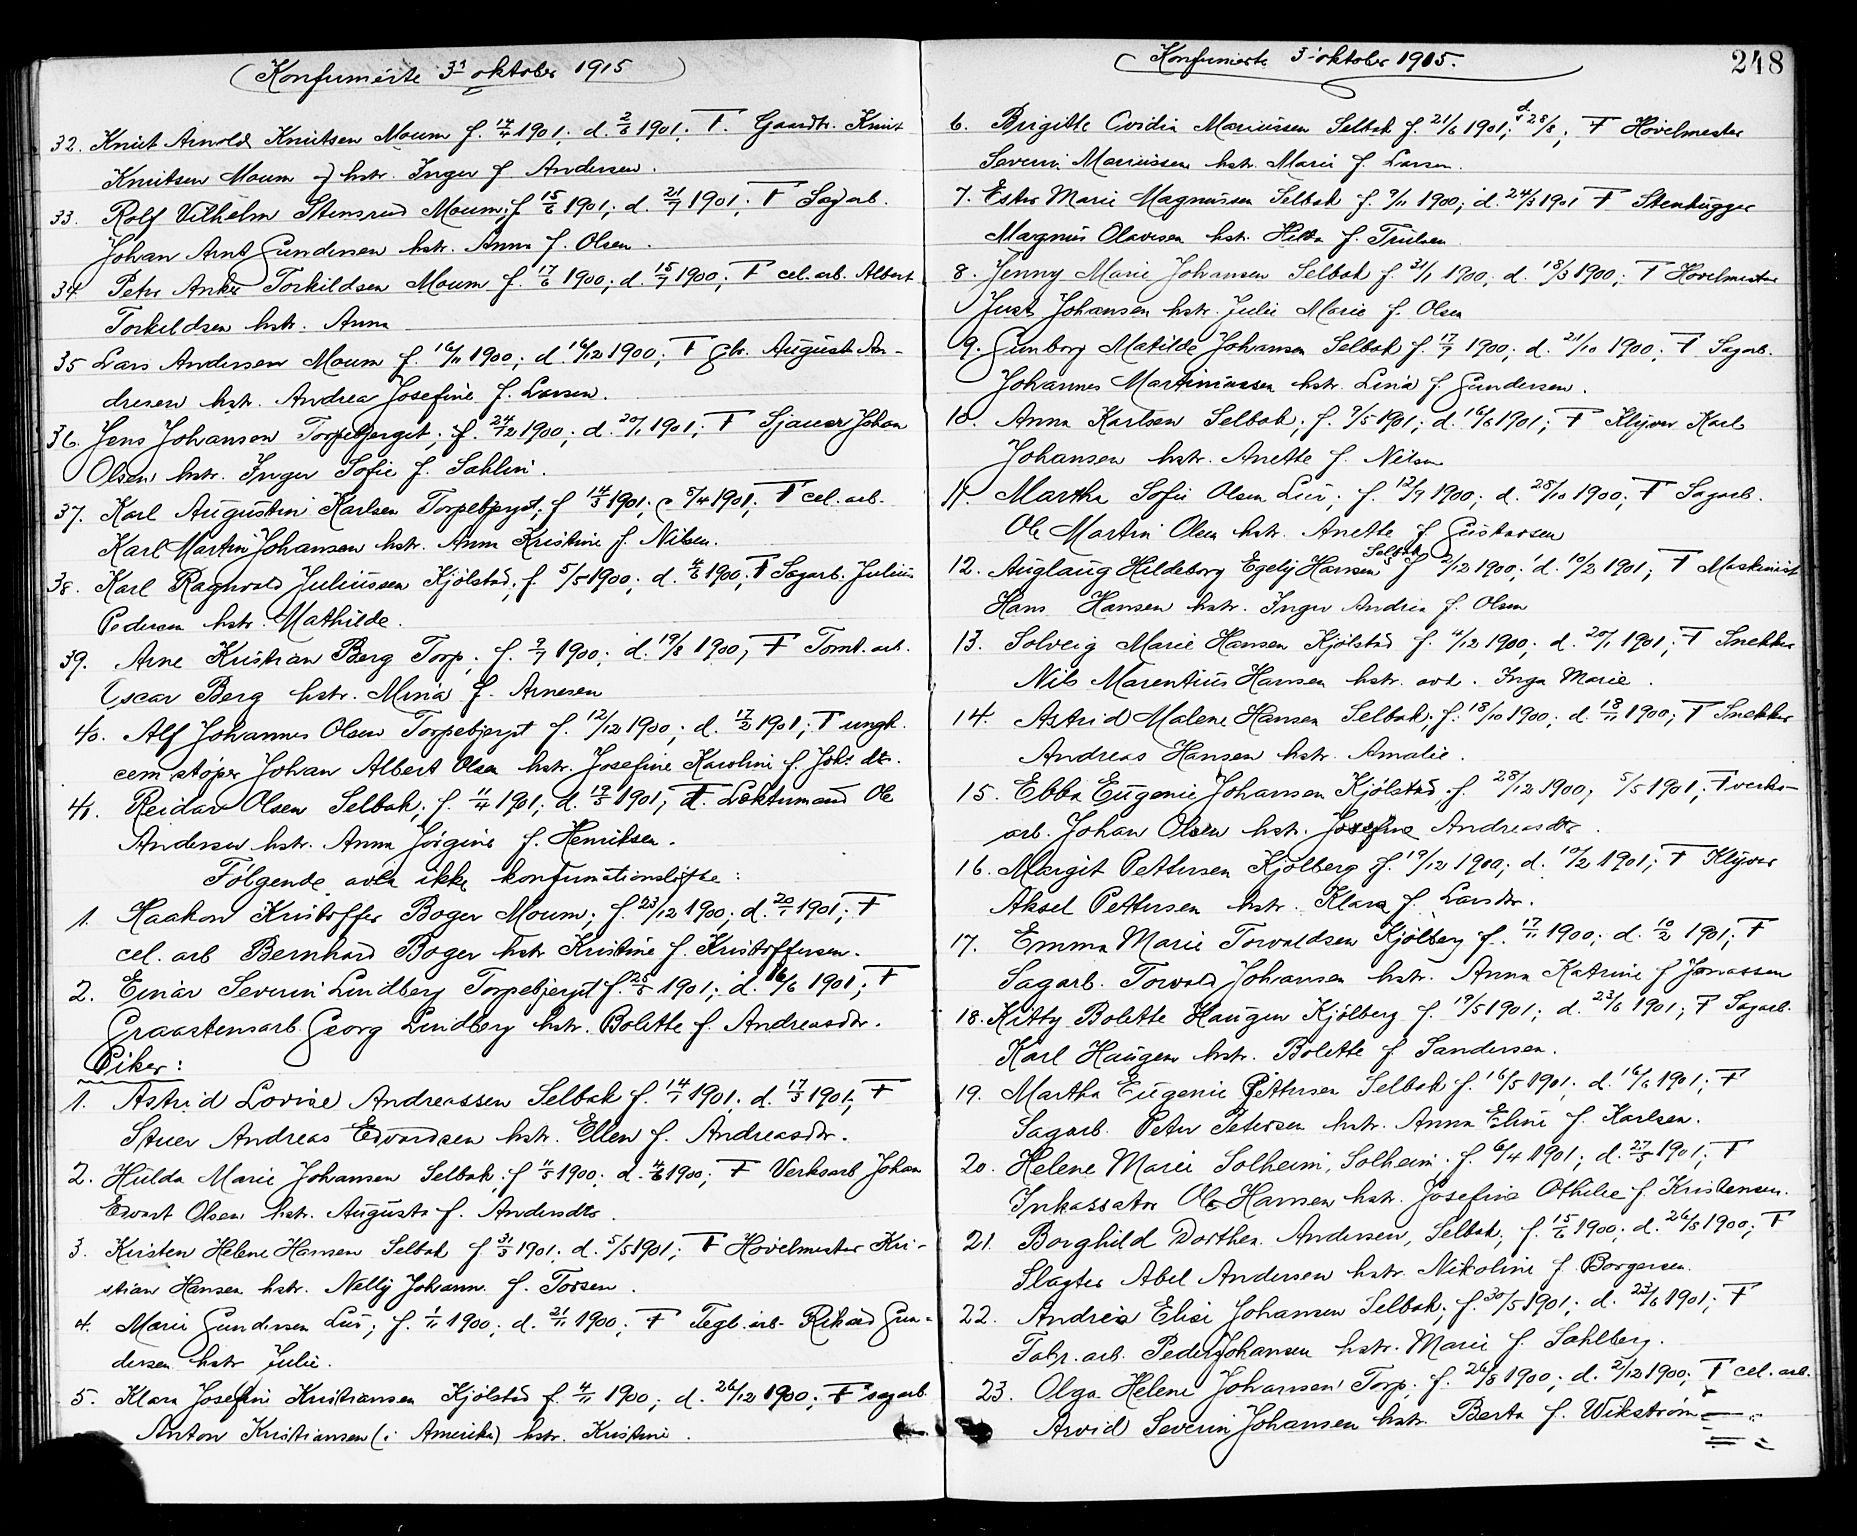 Konfirmerte 3' oktober 1915
32. Knut Arnold Knutsen Moum f. 14/4 1901; d. 2/6 1901; F. Gaardbr. Knut
Knutsen Moum og hstr. Inger f Andersen.
33. Rolf Vilhelm Stensrud Moum; f 15/6 1901; d. 21/7 1901; F Sagarb.
Johan Arnt Gundersen hstr. Anna f. Olsen.
34 Peter Anker Torkildsen Moum f. 17/6 1900; d. 15/7 1900; F cel. arb. Albert
Torkildsen hstr. Anna
35 Lars Andersen Moum f. 16/11 1900; d. 16/12 1900; F Gbr. August An-
dresen hstr. Andrea Josefine f. Larsen.
36. Jens Johanson Torpebjerget; f. 24/12 1900; d. 20/1 1901; F Sjauer Johan
Olsen hstr. Inger Sofie f. Sahlin.
37. Karl Augustin Karlsen Torpebjerget; f 14/3 1901; 5/4 1901; F cel. arb.
Karl Martin Johansen hstr. Anna Kristine f. Nilsen.
38. Karl Ragnvald Juliussen Kjölstad; f. 5/5 1900; d. 4/6 1900; F Sagarb. Julius
Pedersen hstr. Mathilde.
39. Arne Kristian Berg Torp; f. 9/7 1900; d. 19/8 1900; F Tomt. arb.
Oscar Berg hstr. Mina f. Arnesen
40. Alf Johannes Olsen Torpebjerget f. 12/12 1900; d. 17/2 1901; F ungk.
cem.støper Johan Albert Olsen hstr. Josefine Karoline f. Joh. dtr.
41. Reidar Olsen Selbak; f. 11/4 1901; d. 19/5 1901; F. Løktemand Ole
Andersen hstr. Anna Jörgine f. Henriksen.
Følgende avla ikke konfirmationsløfte:
1. Haakon Kristoffer Boger Moum; f. 23/12 1900; d. 20/1 1901; F
cel. arb Bernhard Boger hstr Kristine f. Kristoffersen.
2. Einar Severin Lindberg Torpebjerget f 25/5 1901; d. 16/6 1901; F
Graastensarb. Georg Lindberg hstr. Bolette f. Andreasdtr.
Piker:
1. Astrid Lovise Andreassen Selbak f. 14/1 1901; d. 17/3 1901; F
Stuer Andreas Edvardsen hstr. Ellen f. Andreasdtr.
2. Hulda Marie Johansen Selbak; f 11/5 1900; d. 4/6 1900; F Verksarb Johan
Edvart Olsen hstr. Augusta f. Andersdtr.
3. Kirsten Helene Hansen Selbak f 31/3 1901; d. 5/5 1901; F Høvelmester Kri-
stian Hansen hstr. Nelly Johann. f. Torsen.
4. Marie Gundersen Lui; f. 1/11 1900; d. 21/11 1900; F Tegl. arb. Rikard Gun-
dersen hstr Julie.
5. Klara Josefine Kristiansen Kjölstad f. 4/11 1900; d. 26/12 1900; F sagarb.
Anton Kristiansen (i Amerika) hstr. Kristine.
Konfirmerte 3' oktober 1915.
248
6. Brigitte Ovidia Mariussen Selbak f. 21/6 1901; d. 25/8; F Hövelmester
Severin Mariussen hstr. Marie f. Larsen.
7. Ester Marie Magnussen Selbak f. 9/11 1900; d. 24/3 1901 F Stenhugger
Magnus Olavesen hstr. Hilda f. Trulsen
8. Jenny Marie Johansen Selbak f. 31/1 1900; d. 18/3 1900; F Hövelmester
Just Johansen hstr. Julie Marie f. Olsen
9. Gunborg Matilde Johansen Selbak f. 17/9 1900; d. 21/10 1900; F Sagarb.
Johannes Martiniussen hstr. Lina f Gundersen.
10. Anna Karlsen Selbak; f. 9/5 1901; d. 16/6 1901; F Klyver Karl
Johansen hstr. Anette f. Nilsen
11 Martha Sofie Olsen Lui; f. 12/9 1900; d. 28/10 1900; F Sagarb.
Ole Martin Olsen hstr. Anette f Gustavsen
Selbak
12. Auglaug Hildeborg Egely Hansen f 2/12 1900; d. 10/2 1901; F Maskinist
Hans Hansen hstr. Inger Andrea f. Olsen
13. Solveig Marie Hansen Kjölstad f. 4/12 1900; d. 20/1 1901; F Snekker
Nils Marentius Hansen hstr. avd. Inga Marie.
14. Astrid Malene Hansen Selbak; f. 18/10 1900; d. 18/11 1900; F Snekker
Andreas Hansen hstr. Amalie.
15. Ebba Eugenie Johansen Kjölstad f 28/12 1900; 5/5 1901; F verks-
arb. Johan Olsen hstr. Josefine Andreasdtr.
16. Margit Pettersen Kjölberg f. 19/12 1900; d. 10/2 1901; F Klyver
Aksel Pettersen hstr. Klara f. Larsdtr.
17. Emma Marie Torvaldsen Kjölberg f. 17/11 1900; d. 10/2 1901; F
Sagarb. Torvald Johansen hstr. Anna Katrine f Jonassen
18. Kitty Bolette Haugen Kjölberg f. 19/5 1901; d. 23/6 1901; F Sagarb.
Karl Haugen hstr. Bolette f Sandersen.
19. Martha Eugenie Pettersen Selbak f. 16/5 1901; d. 16/6 1901; F
Sagarb. Peter Petersen hstr. Anna Eline f. Karlsen.
20. Helene Marie Solheim, Solheim; f. 6/4 1901; d. 27/5 1901; F
Inkassator Ole Hansen hstr. Josefine Othilie f. Kristensen.
21. Borghild Dorthea Andersen, Selbak; f. 15/6 1900; d. 26/8 1900; F
Slagter Abel Andersen hstr. Nikoline f Borgersen.
22. Andrea Elise Johansen Selbak; f. 30/5 1901; d. 23/6 1901; F
Fabr. arb. Peder Johansen hstr. Marie f. Sahlberg.
23. Olga Helene Johansen Torp; f. 26/8 1900; d. 2/12 1900; F cel. arb.
Arvid Severin Johansen hstr. Berta f. Wikström